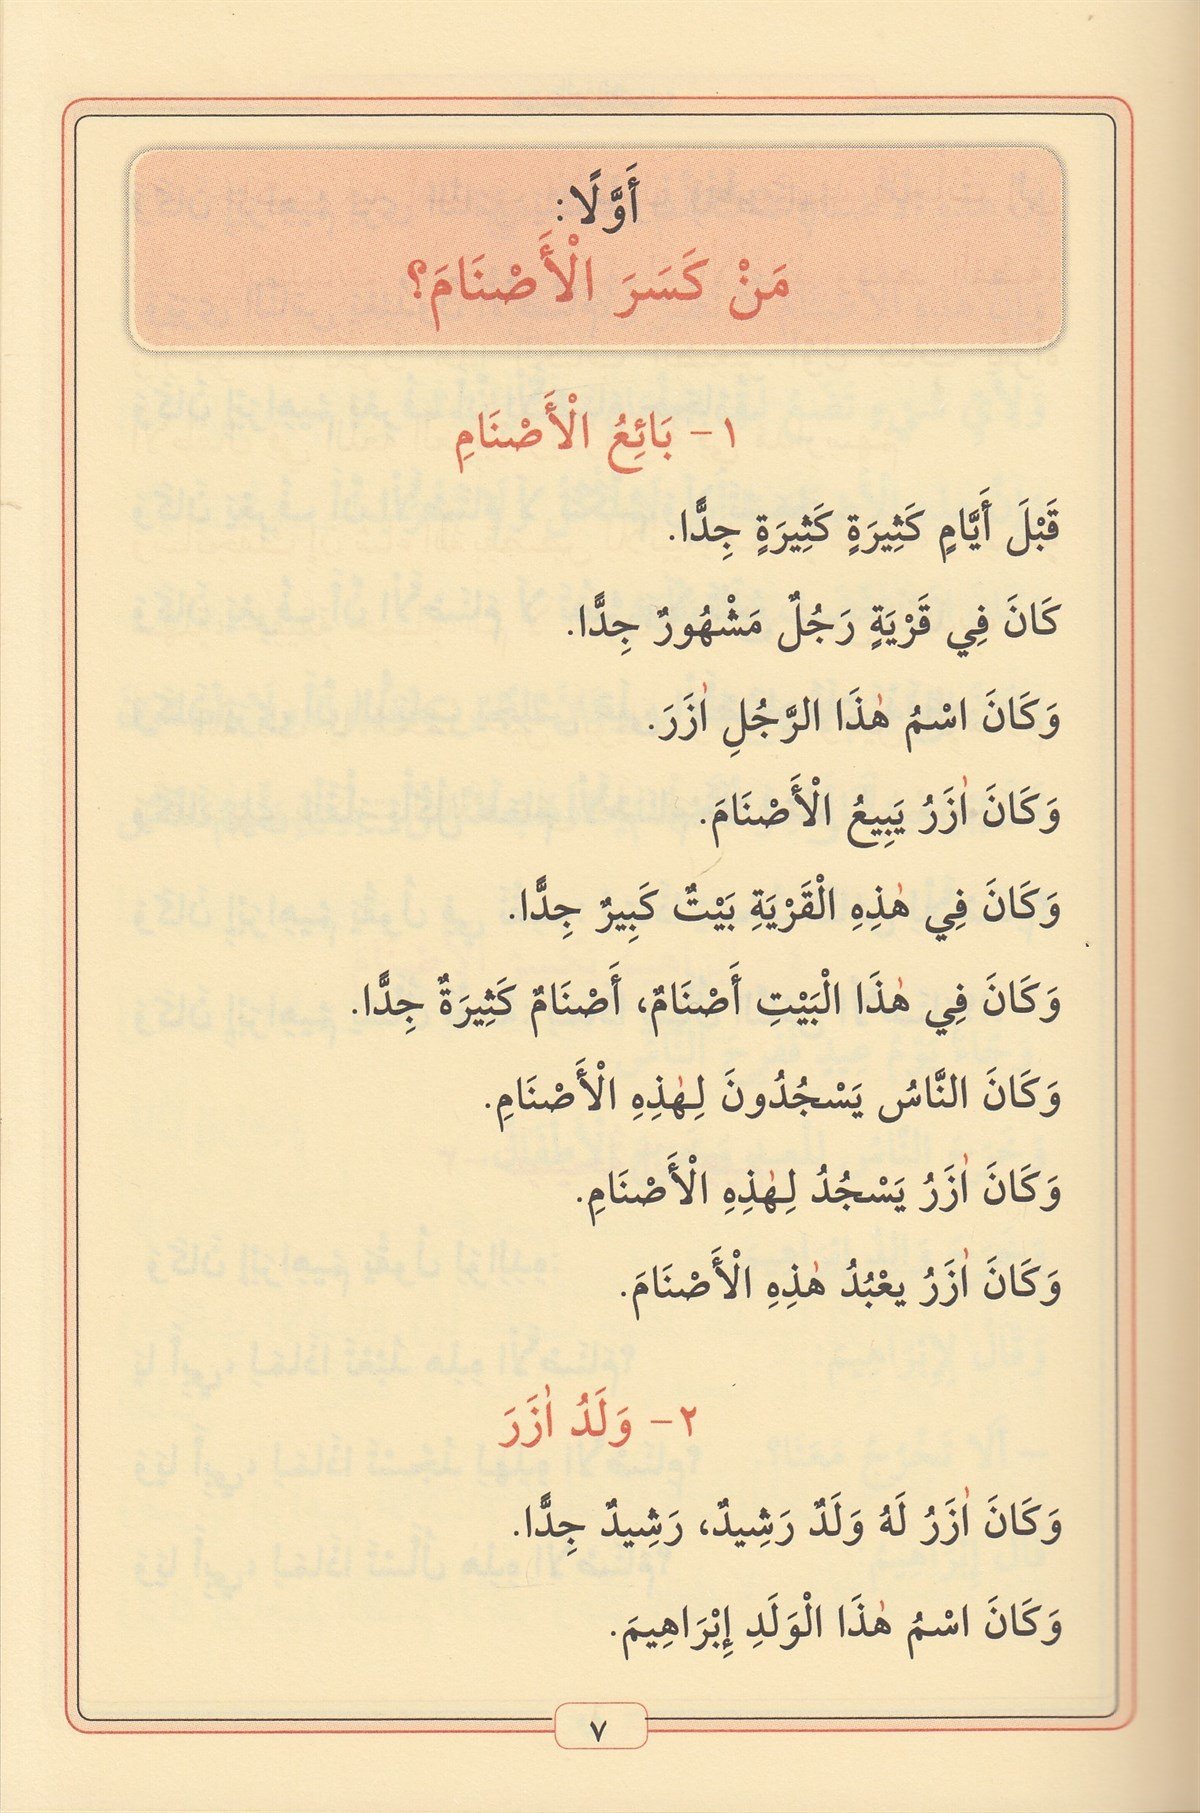 أَوَّلًا:
مَنْ كَسَرَ الْأَصْنَامَ؟
١- بَائِعُ الْأَصْنَامِ
قَبْلَ أَيَّامٍ كَثِيرَةٍ كَثِيرَةٍ جِدًّا.
كَانَ فِي قَرْيَةٍ رَجُلٌ مَشْهُورٌ جِدًّا.
وَكَانَ اسْمُ هٰذَا الرَّجُلِ اٰزَرَ.
وَكَانَ اٰزَرُ يَبِيعُ الْأَصْنَامَ.
وَكَانَ فِي هٰذِهِ الْقَرْيَةِ بَيْتٌ كَبِيرٌ جِدًّا.
وَكَانَ فِي هٰذَا الْبَيْتِ أَصْنَامٌ، أَصْنَامٌ كَثِيرَةٌ جِدًّا.
وَكَانَ النَّاسُ يَسْجُدُونَ لِهٰذِهِ الْأَصْنَامِ.
وَكَانَ اٰزَرُ يَسْجُدُ لِهٰذِهِ الْأَصْنَامِ.
وَكَانَ اٰزَرُ يعْبُدُ هٰذِهِ الْأَصْنَامَ.
٢- وَلَدُ اٰزَرَ
وَكَانَ اٰزَرُ لَهُ وَلَدٌ رَشِيدٌ، رَشِيدٌ جِدًّا.
وَكَانَ اسْمُ هٰذَا الْوَلَدِ إِبْرَاهِيمَ.
٧